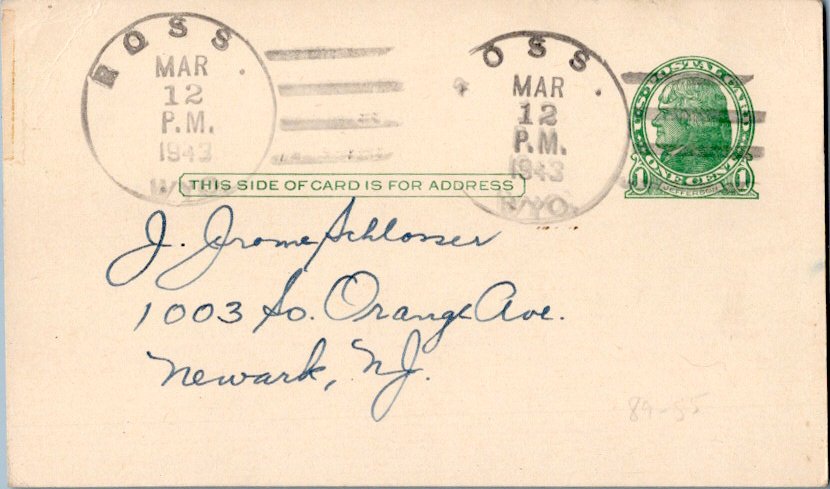 ROSS.
MAR
12
P.M.
1943
WYO.
ROSS.
MAR
12
P.M.
1943
WYO.
U.S. POSTAL CARD
ONE CENT
1 JEFFERSON 1
THIS SIDE OF CARD IS FOR ADDRESS
J. Jrome Schlosser
1003 So. Orange Ave.
Newark, NJ.
89-55